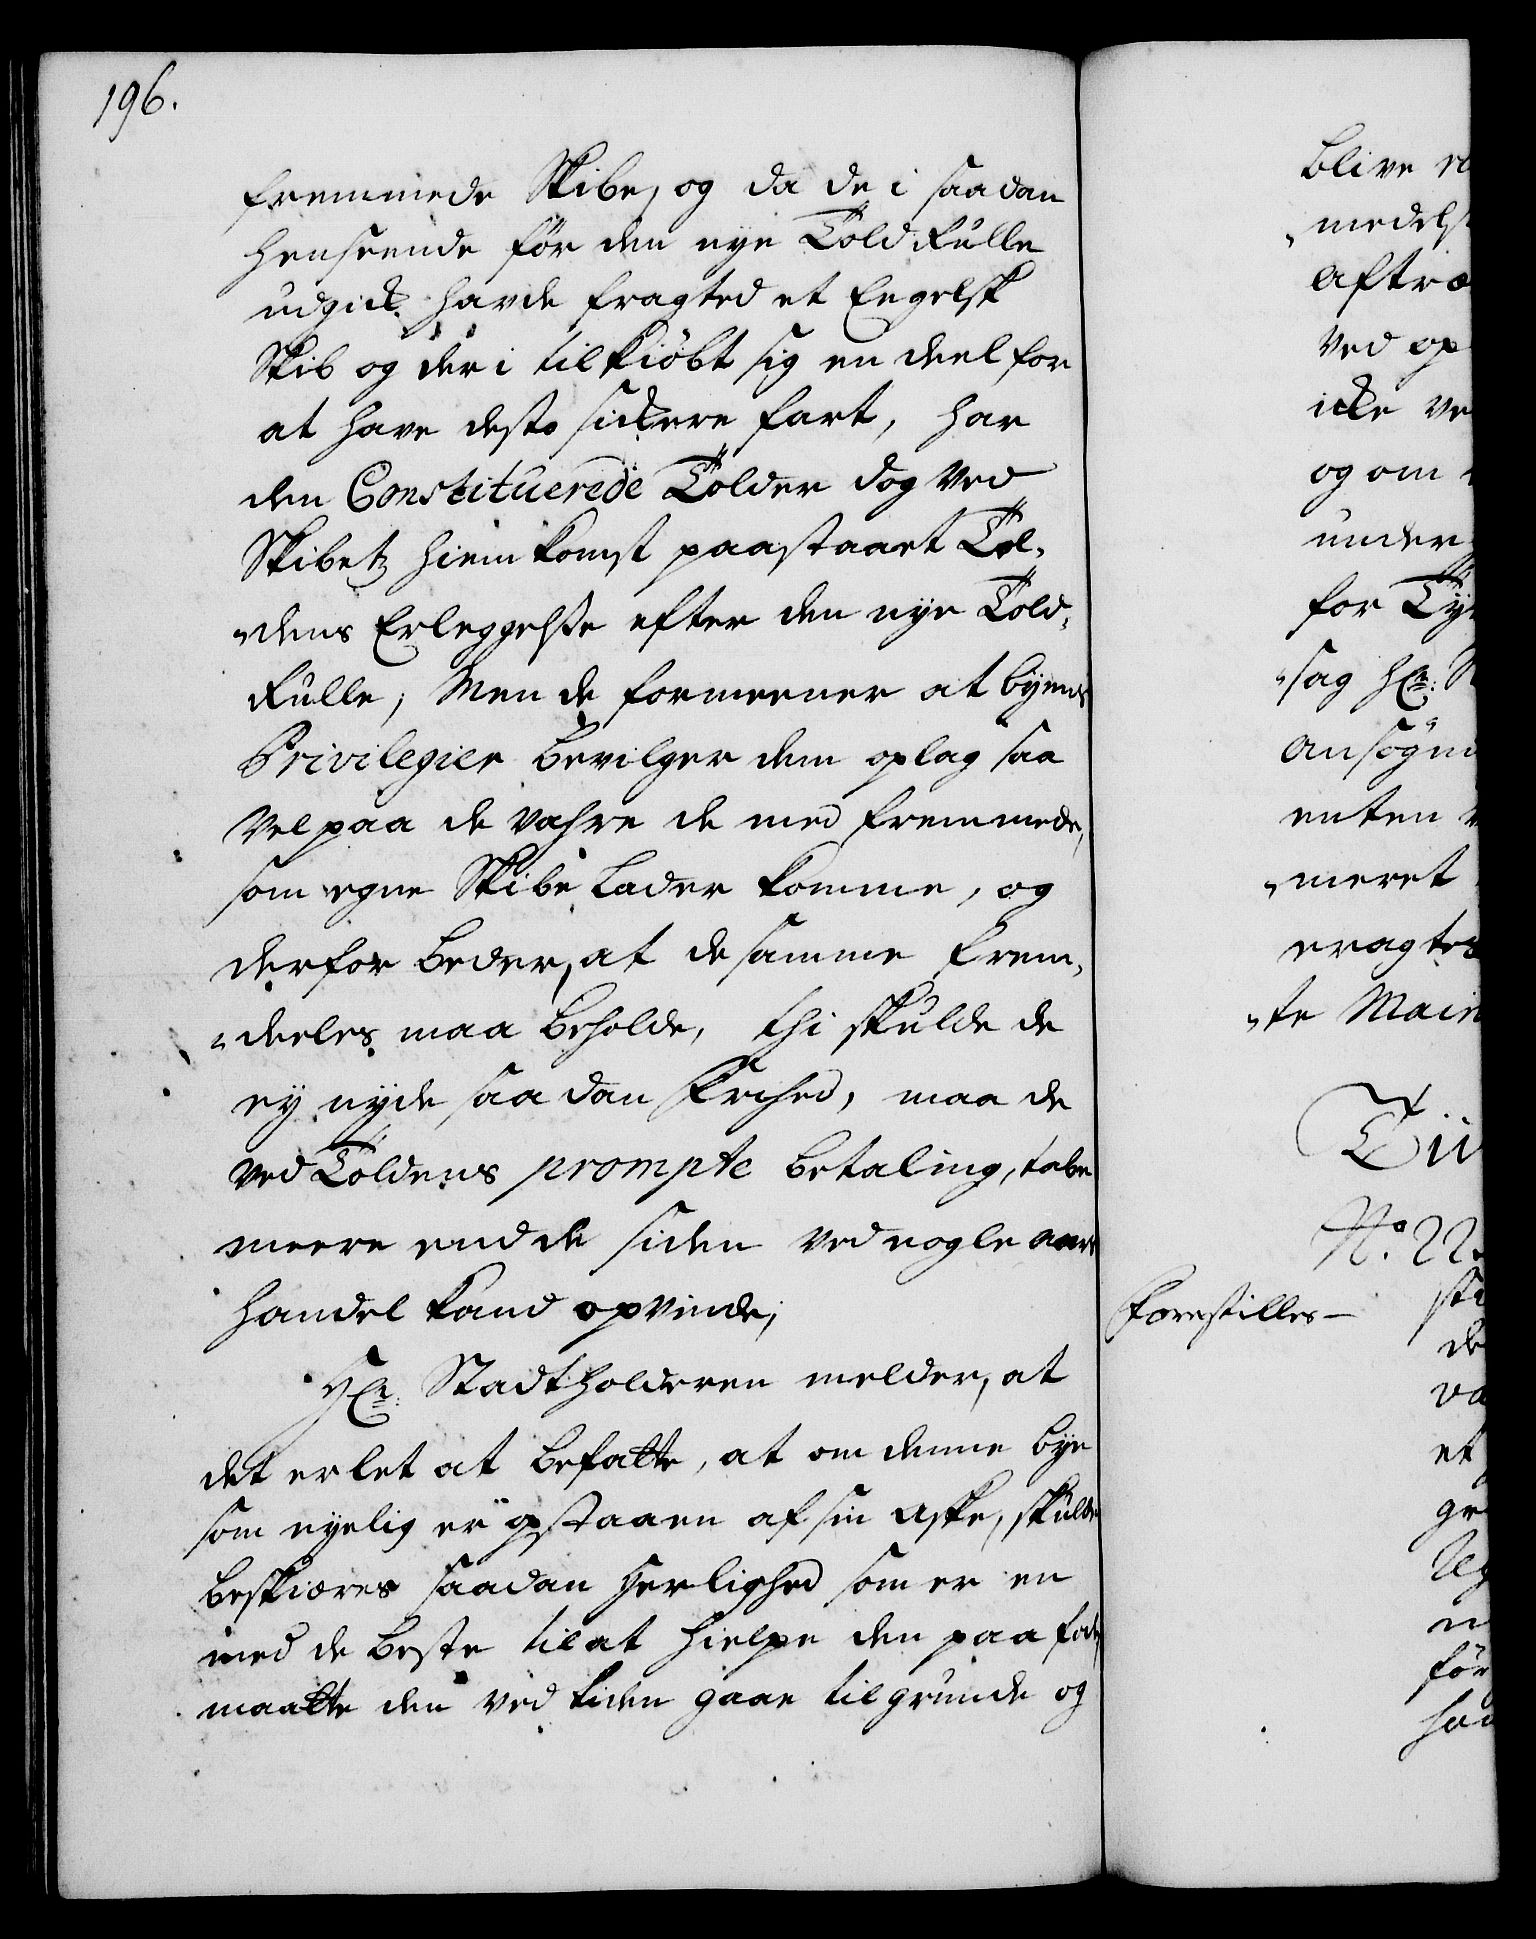 196.
fremmede Skibe, og da de i saadan
henseende för den nye Told Rulle
udgick havde fragted et Engelsk
Skib og der i tilkiöbt sig en deel for
at have desto sickere fart, har
den Constituerede Tolder dog ved
Skibetz hiemkomst paastaaet Tol-
dens Erleggelse efter den nye Told-
Rulle, Men de formeener at byens
Privilegier bevilger dem oplag saa
vel paa de Vahre de med fremmede,
som egne Skibe lader komme, og
derfor beder, at de samme frem-
deeles maa beholde, thi skulde de
ey nyde saadan Frihed, maa de
ved Toldens prompte betaling, tabe
meere end de siden ved nogle aars
handel kand opvinde;
Hr. Stadtholderen melder, at
det er let at befatte, at om denne bye
som nyelig er opstaaen af sin Aske, skulde
beskiæres saadan Herlighed som er en
med de beste til at hielpe den paa fode,
maatte den ved tiden gaae til grunde og
blive
medelst
aftræ
ved op
icke ve
og om
under
for Ty
sag Hr.
ansögn
enten
meret
eragte
te
No. 22.
Forestilles
de
va
et
gr
för